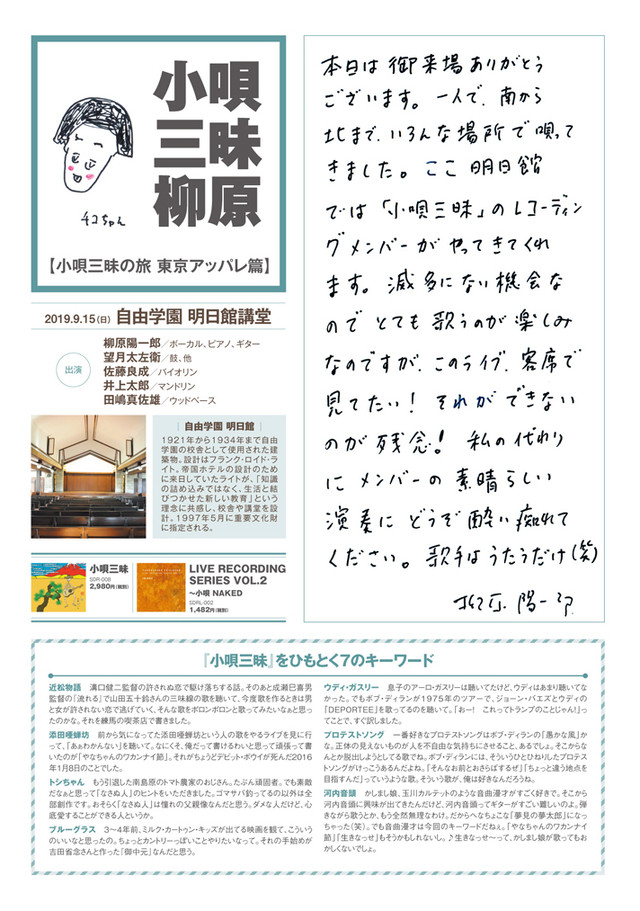 小唄
三昧
柳原
チコちゃん
【小唄三昧の旅 東京アッパレ篇】
2019.9.15(日) 自由学園 明日館講堂
出演
柳原陽一郎／ボーカル、ピアノ、ギター
望月太左衛／鼓、他
佐藤良成／バイオリン
井上太郎／マンドリン
田嶋真佐雄／ウッドベース
自由学園 明日館
1921年から1934年まで自由
学園の校舎として使用された建
築物。設計はフランク・ロイド・ラ
イト。帝国ホテルの設計のため
に来日していたライトが、「知識
の詰め込みではなく、生活と結
びつかせた新しい教育」という
理念に共感し、校舎や講堂を設
計。1997年5月に重要文化財
に指定される。
小唄三昧
SDR-008
2,980円(税別)
LIVE RECORDING
SERIES VOL.2
〜小唄 NAKED
SDRL-002
1,482円(税別)
本日は御来場ありがとう
ございます。一人で、南から
北まで、いろんな場所で唄って
きました。ここ明日館
では「小唄三昧」のレコーディン
グメンバーがやってきてくれ
ます。滅多にない機会な
のでとても歌うのが楽しみ
なのですが、このライブ、客席で
見てたい！それができない
のが残念！私の代わり
にメンバーの素晴らしい
演奏にどうぞ酔い痴れて
ください。歌手はうたうだけ(笑)
柳原陽一郎
『小唄三昧』をひもとく7のキーワード
近松物語 溝口健二監督の許されぬ恋で駆け落ちする話。そのあと成瀬巳喜男
監督の「流れる」で山田五十鈴さんの三味線の歌を聴いて、今度歌を作るときは男
と女が許されない恋で逃げていく、そんな歌をポロンポロンと歌ってみたいなぁと思っ
たのかな。それを練馬の喫茶店で書きました。
添田唖蝉坊 前から気になってた添田唖蝉坊という人の歌をやるライブを見に行
って、「ぁぁわかんない」を聴いて。なにくそ、俺だって書けるわいと思って頑張って書
いたのが「やなちゃんのワカンナイ節」。それがちょうどデビット・ボウイが死んだ2016
年1月8日のことでした。
トシちゃん もう引退した南島原のトマト農家のおじさん。たぶん頑固者。でも素敵
だなぁと思って「なさぬ人」のヒントをいただきました。ゴマサバ釣ってるの以外は全
部創作です。おそらく「なさぬ人」は憧れの父親像なんだと思う。ダメな人だけど、心
底愛することができる人というか。
ブルーグラス 3〜4年前、ミルク・カートゥン・キッズが出てる映画を観て、こういう
のいいなと思ったの。ちょっとカントリーっぽいことやりたいなって。それの手始めが
吉田省念さんと作った「御中元」なんだと思う。
ウディ・ガスリー 息子のアーロ・ガスリーは聴いてたけど、ウディはあまり聴いてな
かった。でもボブ・ディランが1975年のツアーで、ジョーン・バエズとウディの
「DEPORTEE」を歌ってるのを聴いて。「おー！ これってトランプのことじゃん！」っ
てことで、すぐ訳しました。
プロテストソング 一番好きなプロテストソングはボブ・ディランの「愚かな風」か
な。正体の見えないものが人を不自由な気持ちにさせること、あるでしょ。そこからな
んとか脱出しようとしてる歌でね。ボブ・ディランには、そういうひとひねりしたプロテス
トソングがけっこうあるんだよね。「そんなお前とおさらばするぜ」「ちょっと違う地点を
目指すんだ」っていうような歌。そういう歌が、俺は好きなんだろうね。
河内音頭 かしまし娘、玉川カルテットのような音曲漫才がすごく好きで。そこから
河内音頭に興味が出てきたんだけど、河内音頭ってギターがすごい難しいのよ。弾
きながら歌うとか、もう全然無理なわけ。だからへなちょこな「夢見の夢太郎」になっ
ちゃった(笑)。でも音曲漫才は今回のキーワードだねぇ。「やなちゃんのワカンナイ
節」「生きなっせ」もそうかもしれないし。♪生きなっせ〜って、かしまし娘が歌っても
かしくないでしょ。